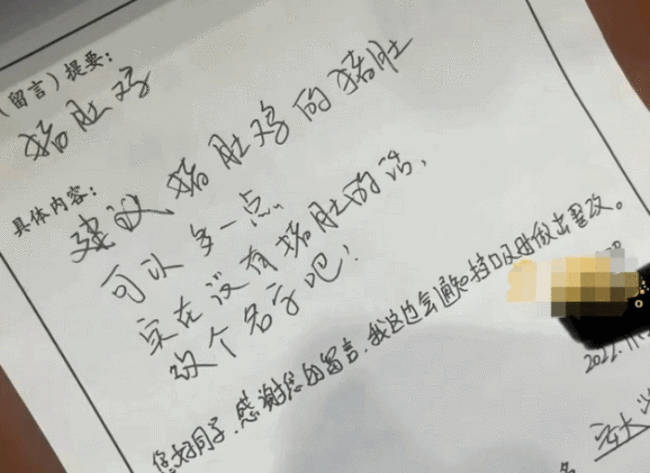 (留言)提要:
猪肚鸡
具体内容:
建议 猪肚鸡的猪肚
可以 多一点
实在没有猪肚的话,
改个名字吧!
您好同学,感谢您的留言,我这边会通知档口及时做出整改。
2022.11.